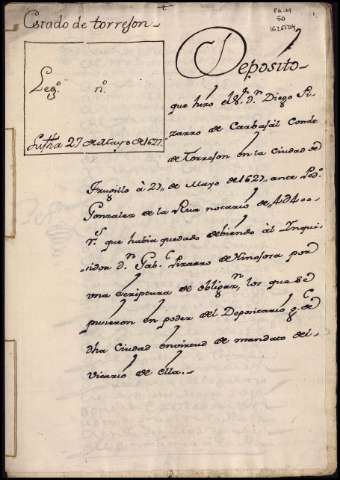 Estado de torreson
Leg.º n.º
Su fha 27 de Mayo de 1627
Deposito
que hizo el S.r D.n Diego Pi
zarro de Carbajal Conde
de Torreson en la Ciudad de
Trugillo à 27 de Mayo de 1627 ante
Gonzalez de la Rua notario de
r.s que habia quedado debiendo al Ynqui
sidor D.n Gab.l Pizarro de Hinojosa por
una scriptura de obligaz.n los que se
pusieron en poder del Depositario g. de
dha Ciudad en virtud de mandato del
Vicario de ella.